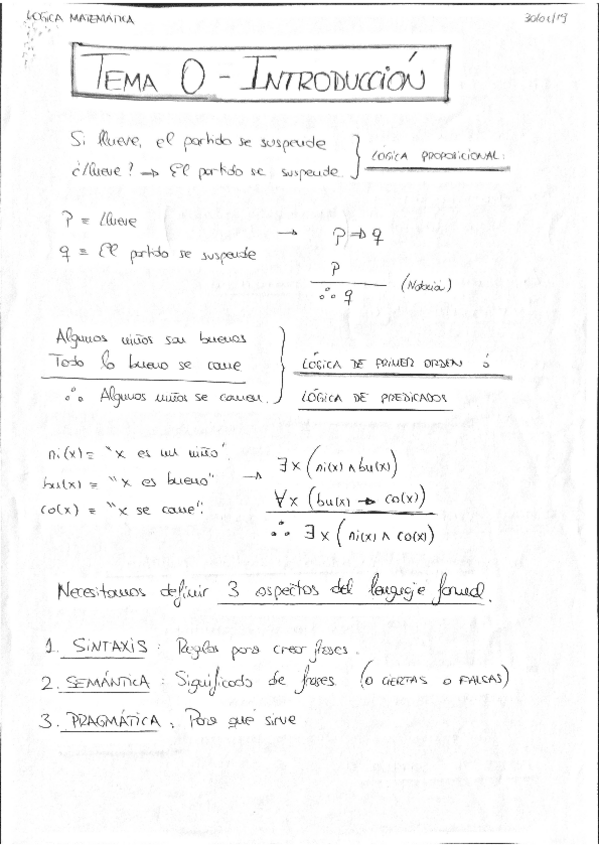 LÓGICA MATEMÁTICA
30/01/19
TEMA 0 - INTRODUCCIÓN
Si llueve, el partido se suspende
¿llueve? → El partido se suspende
LÓGICA PROPOSICIONAL:
p ≡ llueve
q ≡ El partido se suspende
→ p ⇒ q
p
∴ q
(Notación)
Algunos niños son buenos
Todo lo bueno se come
∴ Algunos niños se comen.
LÓGICA DE PRIMER ORDEN Ó
LÓGICA DE PREDICADOS
ni(x) ≡ "x es un niño".
bu(x) ≡ "x es bueno"
co(x) ≡ "x se come".
→ ∃x (ni(x) ∧ bu(x))
∀x (bu(x) → co(x))
∴ ∃x (ni(x) ∧ co(x))
Necesitamos definir 3 aspectos del lenguaje formal.
1. SINTAXIS: Reglas para crear frases.
2. SEMÁNTICA: Significado de frases (O CIERTAS O FALSAS)
3. PRAGMÁTICA: Para qué sirve